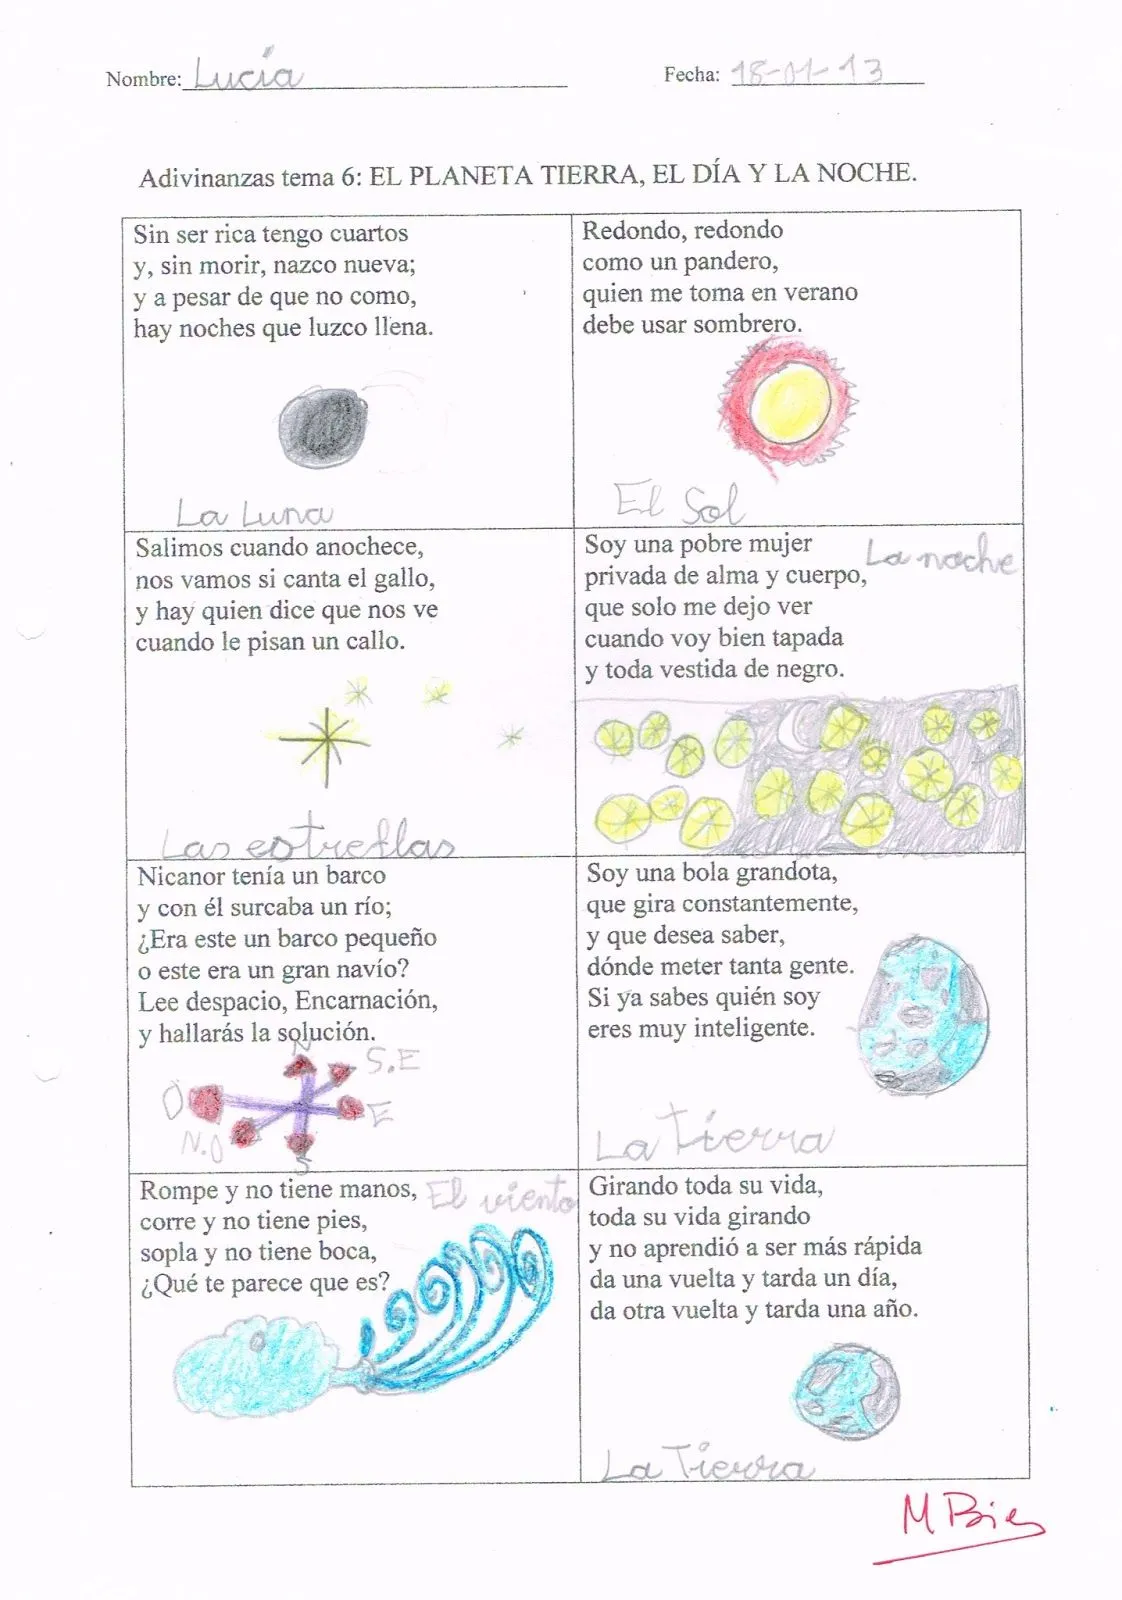 Nombre: Lucía
Fecha: 18-01-13
Adivinanzas tema 6: EL PLANETA TIERRA, EL DÍA Y LA NOCHE.
Sin ser rica tengo cuartos
y, sin morir, nazco nueva;
y a pesar de que no como,
hay noches que luzco llena.
La Luna
Redondo, redondo
como un pandero,
quien me toma en verano
debe usar sombrero.
El Sol
Salimos cuando anochece,
nos vamos si canta el gallo,
y hay quien dice que nos ve
cuando le pisan un callo.
Las estrellas
Soy una pobre mujer
La noche
privada de alma y cuerpo,
que solo me dejo ver
cuando voy bien tapada
y toda vestida de negro.
Nicanor tenía un barco
y con él surcaba un río;
¿Era este un barco pequeño
o este era un gran navío?
Lee despacio, Encarnación,
y hallarás la solución.
N
S.E
O
E
N.O
S
Soy una bola grandota,
que gira constantemente,
y que desea saber,
dónde meter tanta gente.
Si ya sabes quién soy
eres muy inteligente.
La Tierra
Rompe y no tiene manos,
El viento
corre y no tiene pies,
sopla y no tiene boca,
¿Qué te parece que es?
Girando toda su vida,
toda su vida girando
y no aprendió a ser más rápida
da una vuelta y tarda un día,
da otra vuelta y tarda una año.
La Tierra
M